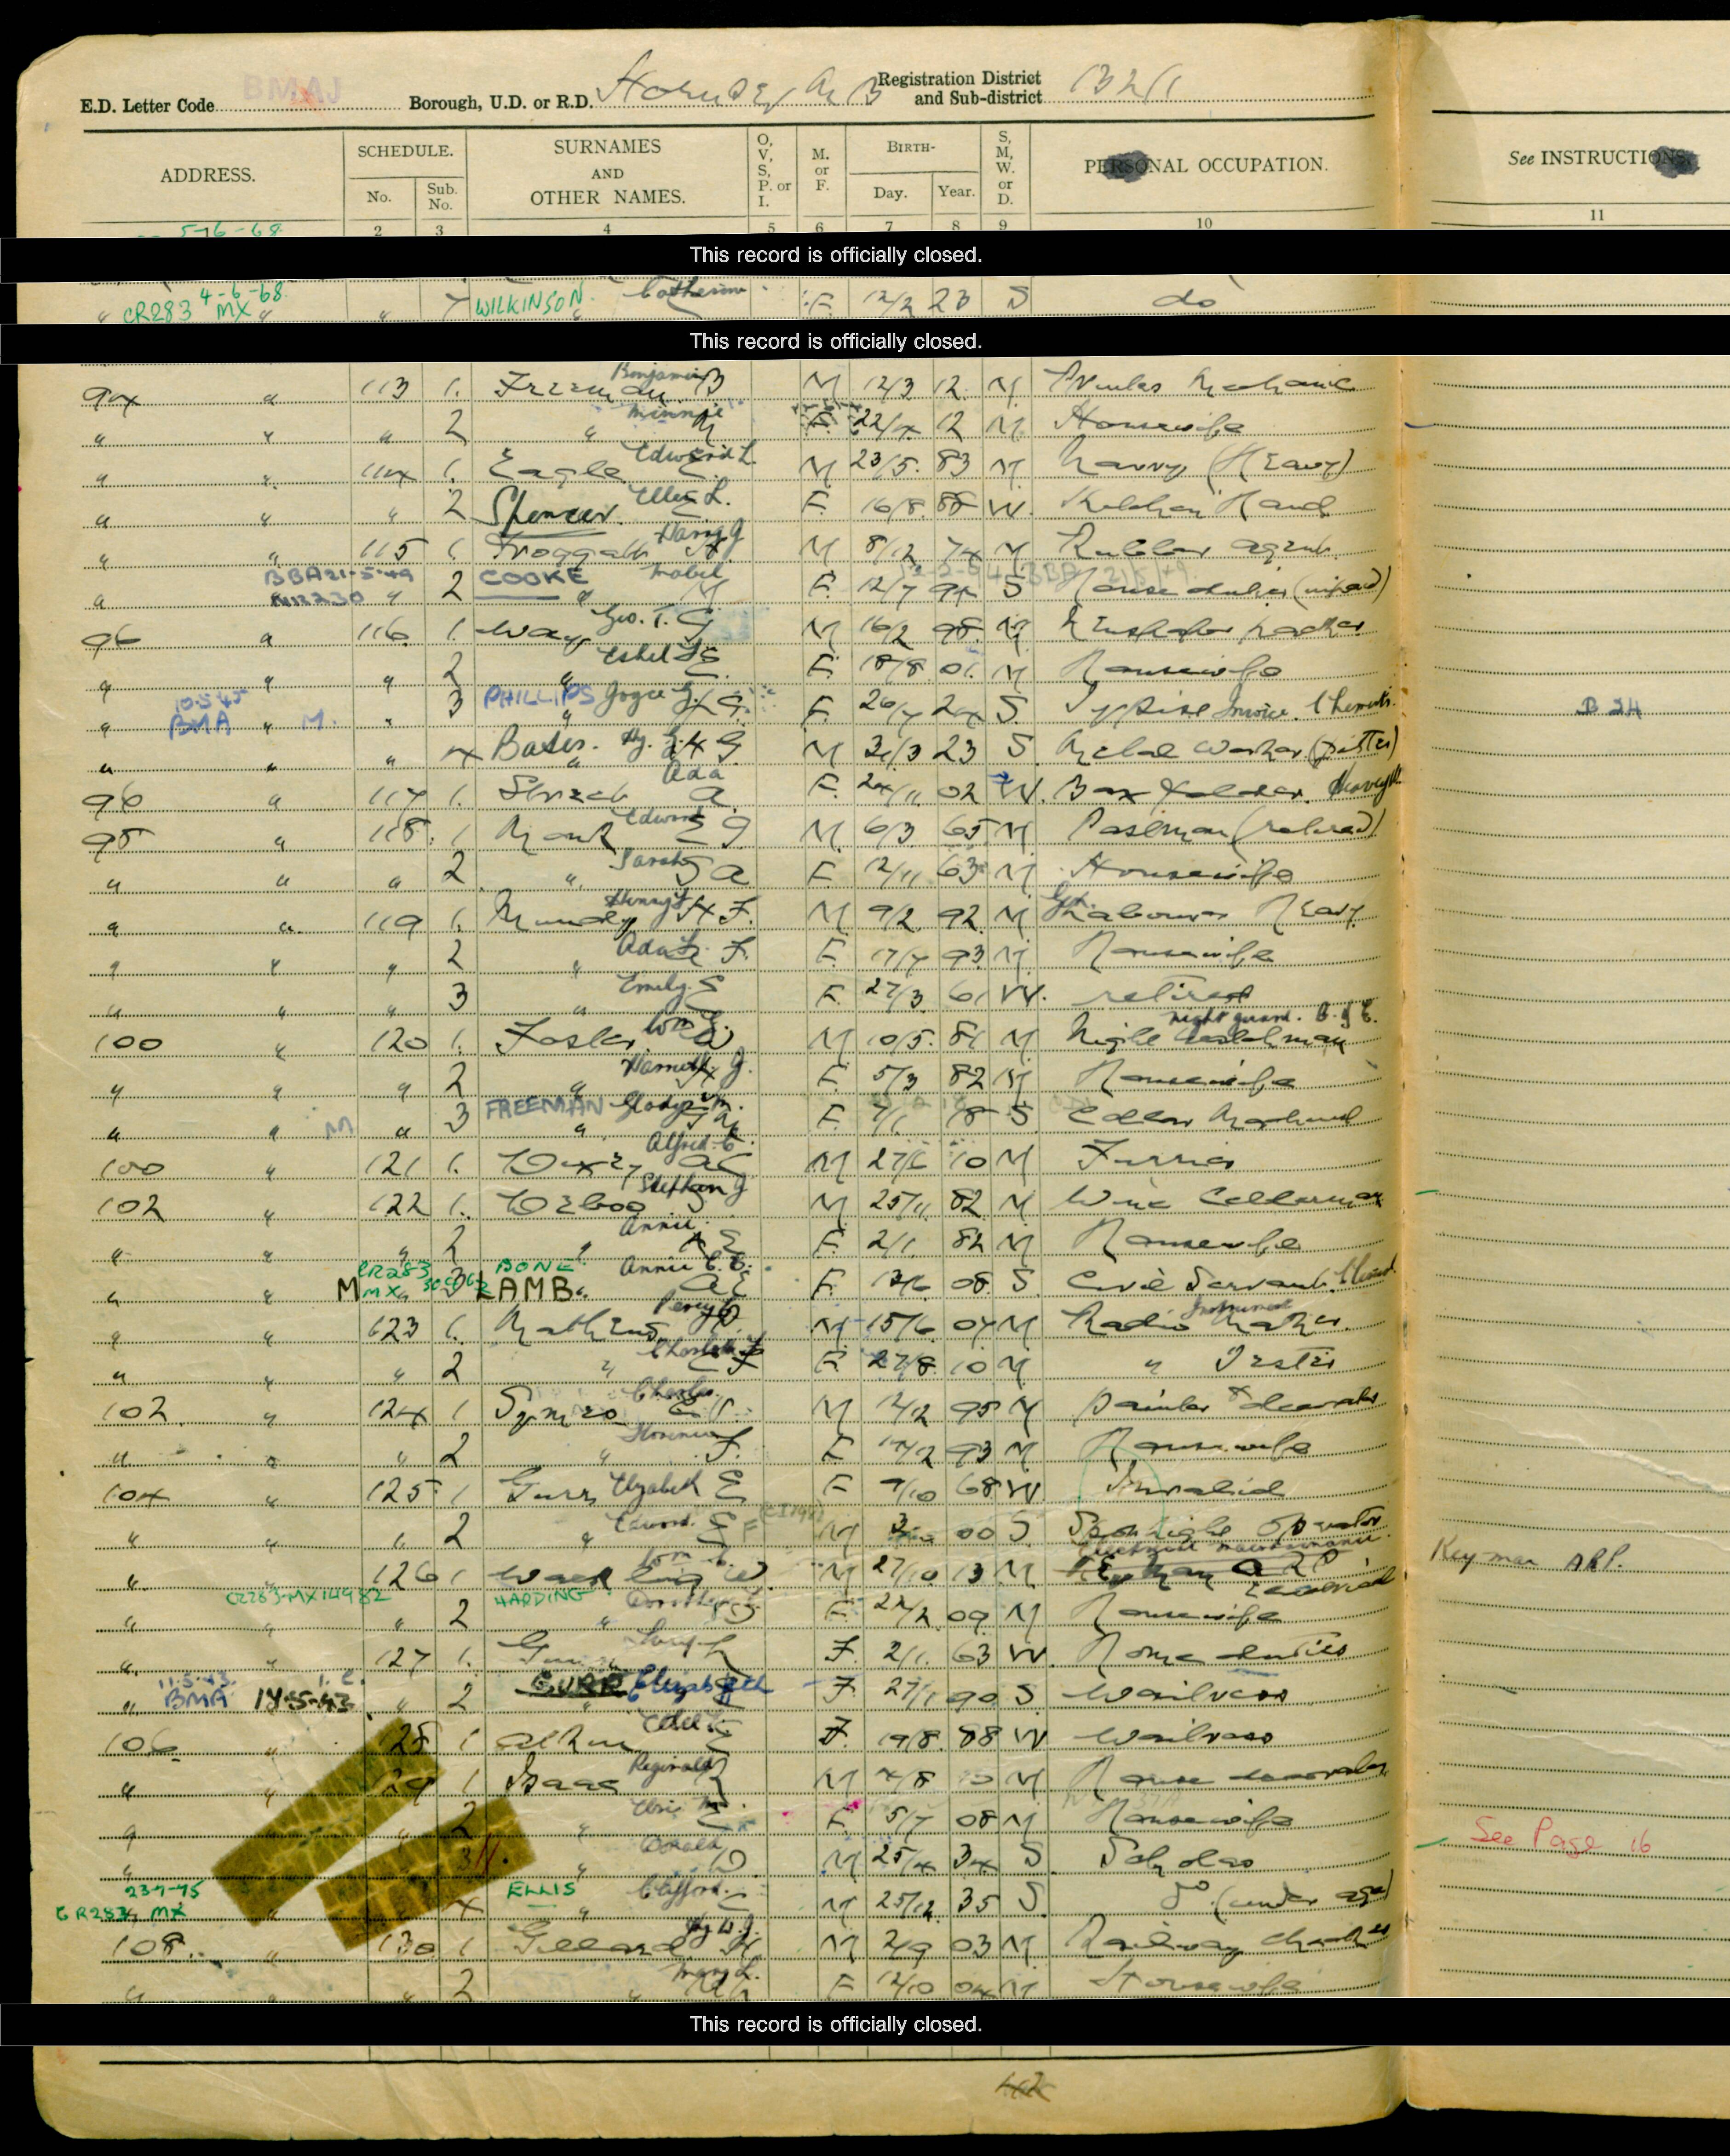 E.D. Letter Code BMAJ Borough, U.D. or R.D. Hornsey M B Registration District and Sub-district 132/1
ADDRESS. SCHEDULE. No. Sub. No. SURNAMES AND OTHER NAMES. O, V, S, P. or I. M. or F. BIRTH- Day. Year. S, M, W. or D. PERSONAL OCCUPATION. See INSTRUCTIONS.
5-6-68 2 3 4 5 6 7 8 9 10 11
This record is officially closed.
4-6-68
" CR283 MX " " 7 WILKINSON " Catherine F 12/2 23 S do
This record is officially closed.
94 " 113 1 Freeman Benjamin B M 12/3 12 M Mechanic
" " " 2 " Minnie M F 22/4 12 M Housewife
" " 114 1 Eagle Edward L. E M 23/5 83 M Navvy (Heavy)
" " " 2 Spencer Ellen L. F 16/8 88 W Kitchen Hand
" " 115 1 Froggatt Harry J H M 8/12 74 M Rubber Agent
BBA 21-5-49
" 2 COOKE " Mabel M F 12/7 94 S House duties (unpaid)
96 " 116 1 Way Geo. T. G M 16/2 98 M Newspaper packer
" " " 2 " Ethel E F 18/8 01 M Housewife
10.5.45
" BMA " M. " 3 PHILLIPS " Joyce G. F 26/7 24 S Typist Invoice. Chemists. B 24
" " " 4 Bates. Hy. G. H G M 3/3 23 S Metal Worker (fitter)
96 " 117 1 Ada A F 24/11 02 W. Box Folder.
98 " 118 1 Monk Edward E J M 6/3 65 M Postman (retired)
" " " 2 " Sarah S A F 12/11 63 M Housewife
" " 119 1 Mundy Henry F H. F. M 9/2 92 M Labourer Heavy
" " " 2 " Ada F. F 17/7 93 M Housewife
" " " 3 " Emily E F 27/3 61 W. retired
100 " 120 1 Foster Wm W M 10/5 81 M Night Watchman night guard. B. of E.
" " " 2 " Harriett J. H F 5/3 82 M Housewife
" " M " 3 FREEMAN " Gladys M. F 7/1 18 S Collar Machinist
100 " 121 1 Alfred C. A C M 27/6 10 M Furrier
102 " 122 1 Stephen J S M 25/11 82 M Wine Cellarman
" " " 2 " Annie E F 2/1 82 M Housewife
CR283 MX BONE
" " M " 3 LAMB " Annie C. E. A E F 13/6 08 S Civil Servant. Clerical
" " 123 1 Mathews Percy P M 15/6 07 M Radio Instrument Maker.
" " " 2 " Charlotte F 27/8 10 M " Tester
102 " 124 1 Symes Charles C M 12/12 95 M Painter & decorator
" " " 2 " Florence F. F 14/2 93 M Housewife
104 " 125 1 Gurr Elizabeth E F 9/10 68 W Invalid
" " " 2 " Edward E F M 00 S Operator
" " 126 1 Wm W M 27/10 13 M electrical maintenance Keyman ARP.
CR283-MX 14982 HARDING
" " " 2 " Dorothy D F 24/2 09 M Housewife
" " 127 1 L F 2/1 63 W Home duties
11.5.43
" BMA 14-5-43 " 2 GURR Elizabeth F 27/1 90 S Waitress
106 " 128 1 Edith E F 19/8 88 W Waitress
" " 129 1 Isaac Reginald R M 4/8 10 M House decorator
" " " 2 " E F 5/7 08 M Housewife
" 3 " Donald D M 25/4 34 S Scholar See Page 16
23-7-75
CR283 MX " 4 ELLIS " Clifford C M 25/12 35 S Do (under age)
108 " 130 1 Gillard Hy W. J. H M 2/9 03 M Railway checker
" " " 2 " Mary L. F 12/10 04 M Housewife
This record is officially closed.